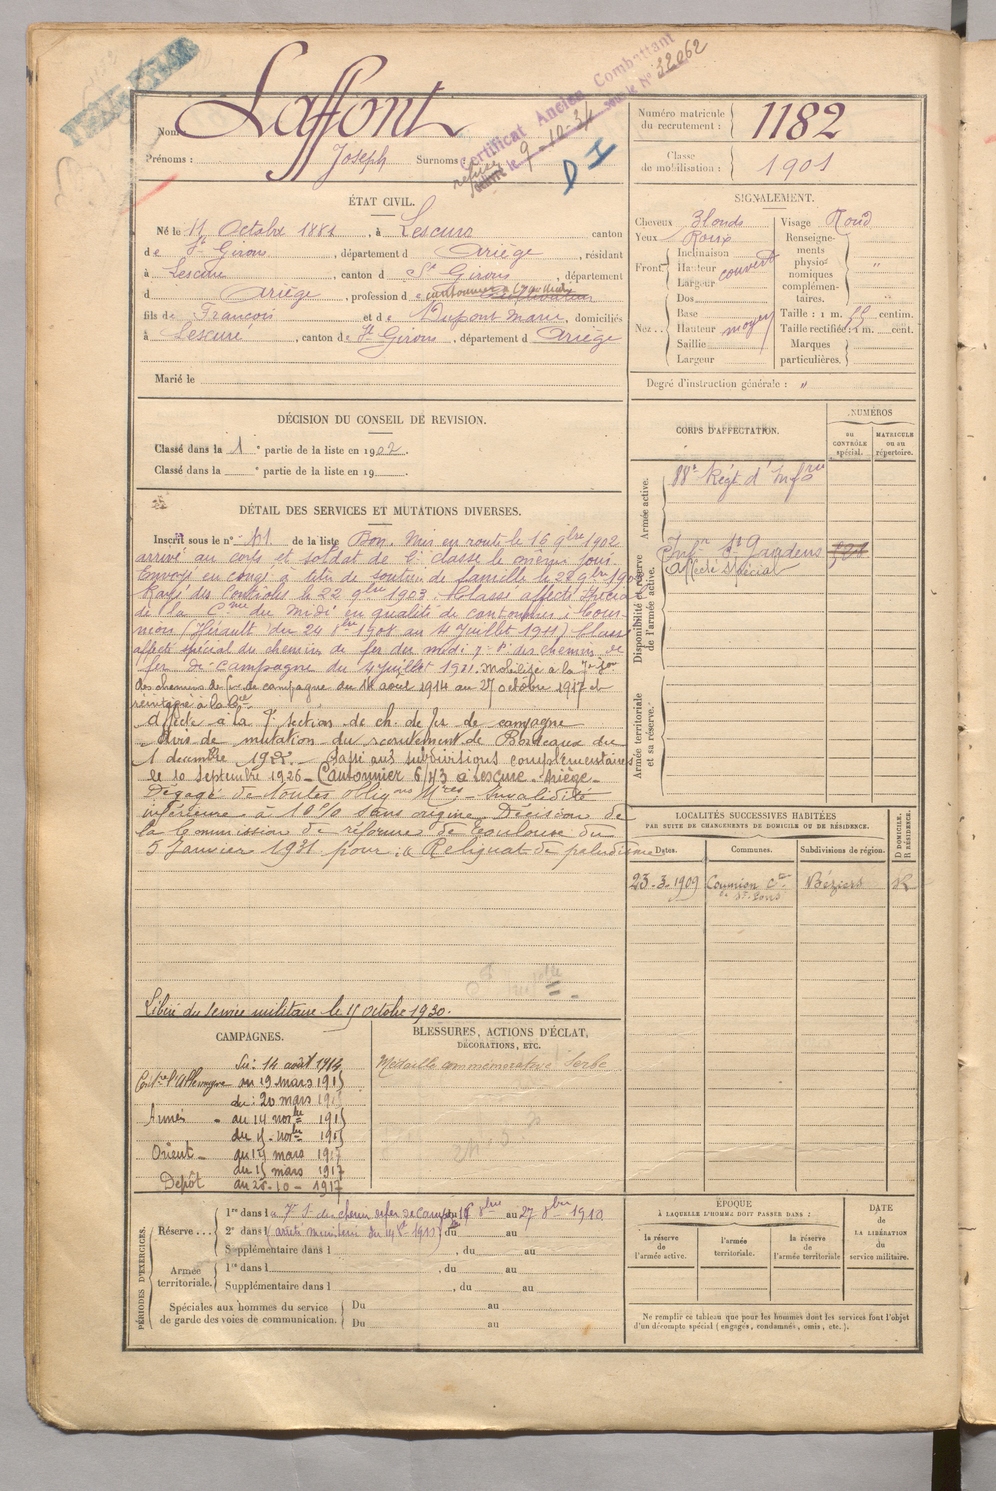 Laffont
Nom
Prénoms : Joseph Surnoms :
Certificat Ancien Combattant
refusé le 9-10-31 sous le N° 32062
D I
Numéro matricule du recrutement : 1182
Classe de mobilisation : 1901
ÉTAT CIVIL.
Né le 11 Octobre 1881, à Lescure canton
de St Girons, département d Ariège, résidant
à Lescure, canton d St Girons, département
d Ariège, profession de cantonnier Cie Midi cultivateur
fils de François et de Dupont Marie, domiciliés
à Lescure, canton de St Girons, département d Ariège
Marié le
SIGNALEMENT.
Cheveux Blonds Visage Rond
Yeux Roux
Renseignements physionomiques complémentaires. "
Front : Inclinaison
Hauteur couvert
Largeur
Dos
Nez : Base
Hauteur moyen
Saillie
Largeur
Taille : 1 m. 55 centim.
Taille rectifiée : 1 m. cent.
Marques particulières.
Degré d'instruction générale : "
DÉCISION DU CONSEIL DE REVISION.
Classé dans la 1e partie de la liste en 1902.
Classé dans la e partie de la liste en 19 .
DÉTAIL DES SERVICES ET MUTATIONS DIVERSES.
Inscrit sous le n° 61 de la liste Bon. Mis en route le 16 9bre 1902
arrivé au corps et soldat de 2e classe le même jour.
Envoyé en congé à titre de soutien de famille le 22 9bre 190
Rayé des Contrôles le 22 9bre 1903. Classé affecté spécial
de la Cie du Midi en qualité de cantonnier à Cour-
niou (Hérault du 24 8bre 1908 au 4 Juillet 1911) Classé
affecté spécial du chemin de fer du midi 7e S. des chemins de
fer de campagne du 4 juillet 1921. Mobilisé à la 7e Son
des chemins de fer de campagne du 14 août 1914 au 27 octobre 1917 et
réintégré à la Cie
affecté à la 7e section de ch. de fer de campagne
Avis de mutation du recrutement de Bordeaux du
1 décembre 192 .- Classé aux subdivisions complémentaires
le 10 Septembre 1926 - Cantonnier 6/43 à Lescure. Ariège-
Dégagé de toutes obligons Mres - Invalidité
inférieure à 10% sans origine. Décision de
la Commission de réforme de Toulouse du
5 Janvier 1931 pour : " Reliquat de paludisme
Libéré du service militaire le 15 octobre 1930.
CORPS D'AFFECTATION.
NUMÉROS
au CONTRÔLE spécial. MATRICULE ou au répertoire.
Armée active.
88e Régt d'Infrie
Disponibilité et réserve de l'armée active.
Infrie St Gaudens
Affecté Spécial
Armée territoriale et sa réserve.
LOCALITÉS SUCCESSIVES HABITÉES
PAR SUITE DE CHANGEMENTS DE DOMICILE OU DE RÉSIDENCE.
Dates. Communes. Subdivisions de région. D DOMICILE. R RÉSIDENCE.
23-3-1909 Courniou Cton de St Pons Béziers R
CAMPAGNES.
Contre l'Allemagne
du : 14 août 1914
au 19 mars 1915
du : 20 mars 1915
Armées - au 14 novbre 1915
du 15 - novbre 1915
Orient - au 14 mars 1917
du 15 mars 1917
Dépôt au 28-10-1917
BLESSURES, ACTIONS D'ÉCLAT,
DÉCORATIONS, ETC.
Médaille commémorative Serbe
PÉRIODES D'EXERCICES.
Réserve... 1re dans la 7e S. du chemin de fer de Campe du 18 8bre au 27 8bre 1910
2e dans l du au
Supplémentaire dans l , du au
Armée territoriale. 1re dans l , du au
Supplémentaire dans l , du au
Spéciales aux hommes du service de garde des voies de communication. Du au
Du au
ÉPOQUE
À LAQUELLE L'HOMME DOIT PASSER DANS :
la réserve de l'armée active. l'armée territoriale. la réserve de l'armée territoriale
DATE de LA LIBÉRATION du service militaire.
Ne remplir ce tableau que pour les hommes dont les services font l'objet
d'un décompte spécial (engagés, condamnés, omis, etc.).